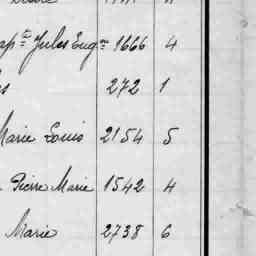 Jules Eug.ne 1666 4
272 1
Marie Louis 2154 5
Pierre Marie 1542 4
Marie 2738 6